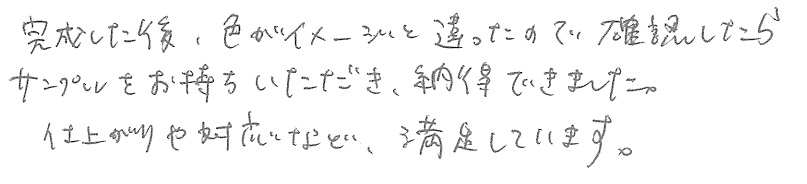 完成した後、色がイメージと違ったので確認したら
サンプルをお持ちいただき、納得できました。
仕上がりや対応など、満足しています。